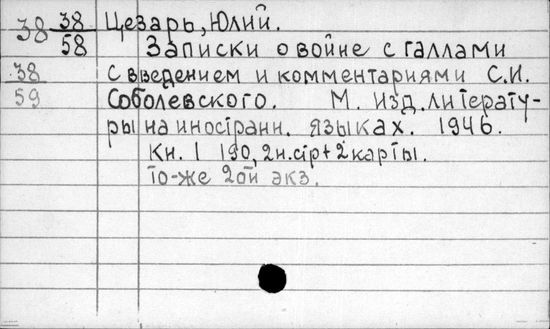 38 38 Цезарь, Юлий.
58 Записки о войне с галлами
38 с введением и комментариями С.И.
59 Соболевского. М. Изд. литерату-
ры на иностранн. языках. 1946.
Кн. 1 190, 2н.стр + 2 карты.
То-же 2ой экз.